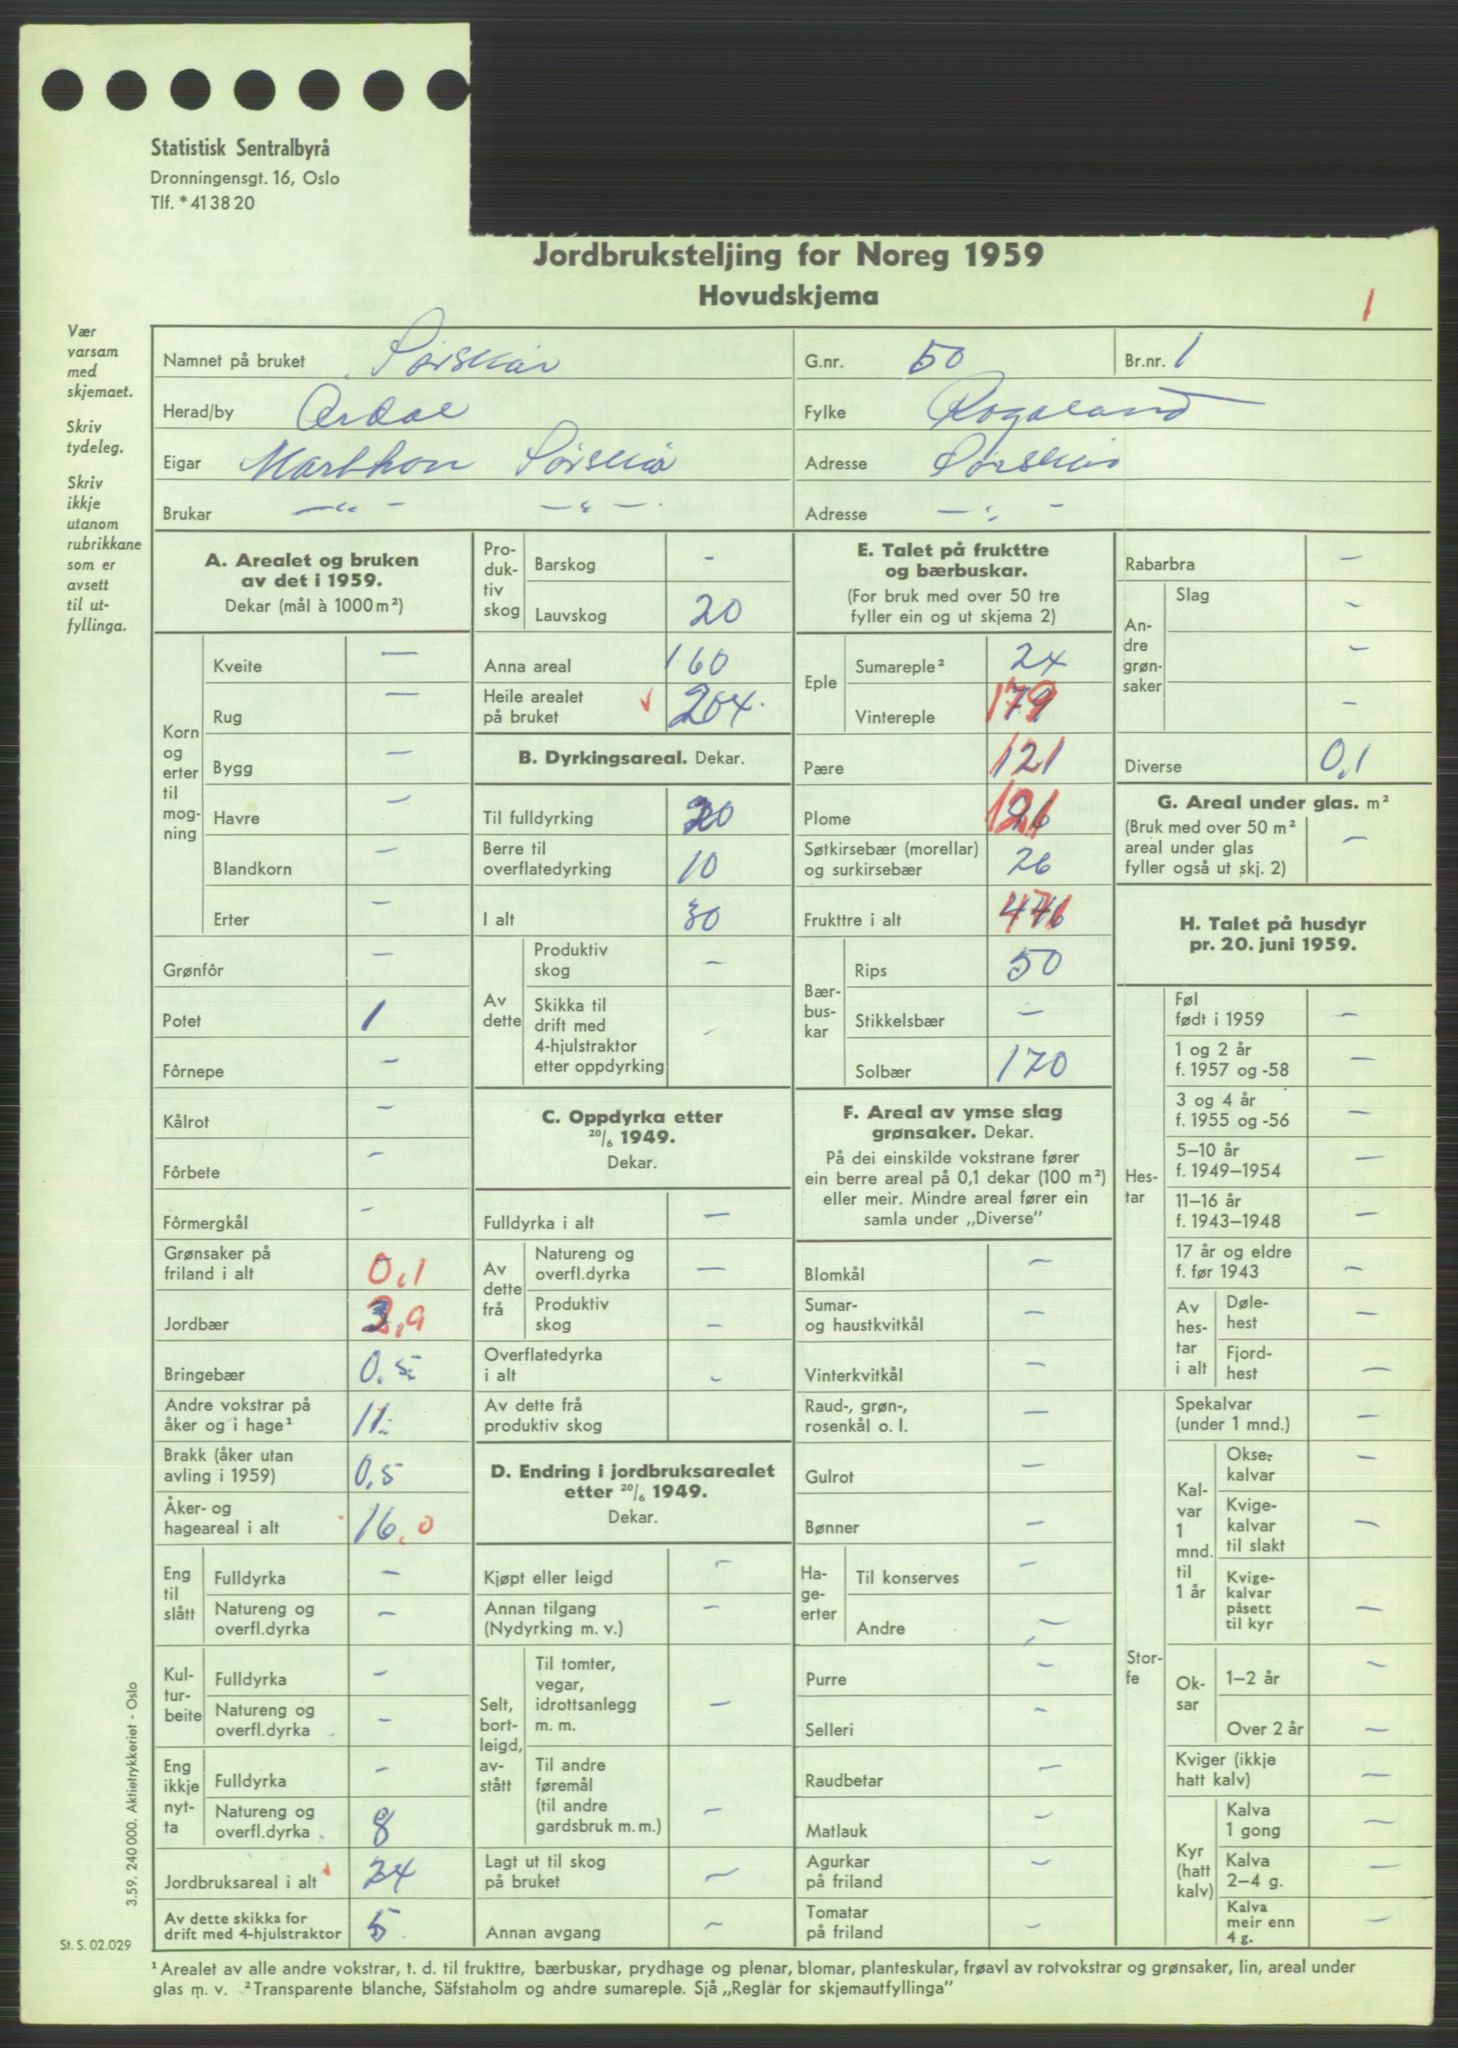 Statistisk Sentralbyrå
Dronningensgt. 16, Oslo
Tlf. *41 38 20
Jordbruksteljing for Noreg 1959
Hovudskjema
1
Vær
varsam
med
skjemaet.
Skriv
tydeleg.
Skriv
ikkje
utanom
rubrikkane
som er
avsett
til ut-
fyllinga.
Namnet på bruket Sørskår G.nr. 50 Br.nr. 1
Herad/by Årdal Fylke Rogaland
Eigar Marthon Sørskår Adresse Sørskår
Brukar — „ — — „ — Adresse — „ —
A. Arealet og bruken
av det i 1959.
Dekar (mål à 1000 m²)
Korn
og
erter
til
mog-
ning
Kveite —
Rug —
Bygg —
Havre —
Blandkorn —
Erter —
Grønfôr —
Potet 1
Fôrnepe —
Kålrot —
Fôrbete —
Fôrmergkål —
Grønsaker på
friland i alt 0,1
Jordbær 2,9
Bringebær 0,5
Andre vokstrar på
åker og i hage¹ 11
Brakk (åker utan
avling i 1959) 0,5
Åker- og
hageareal i alt 16,0
Eng
til
slått
Fulldyrka —
Natureng og
overfl.dyrka —
Kul-
tur-
beite
Fulldyrka —
Natureng og
overfl.dyrka —
Eng
ikkje
nyt-
ta
Fulldyrka —
Natureng og
overfl.dyrka 8
Jordbruksareal i alt 24
Av dette skikka for
drift med 4-hjulstraktor 5
Pro-
duk-
tiv
skog
Barskog —
Lauvskog 20
Anna areal 160
Heile arealet
på bruket 204
B. Dyrkingsareal. Dekar.
Til fulldyrking 20
Berre til
overflatedyrking 10
I alt 30
Av
dette
Produktiv
skog —
Skikka til
drift med
4-hjulstraktor
etter oppdyrking —
C. Oppdyrka etter
20/6 1949.
Dekar.
Fulldyrka i alt —
Av
dette
frå
Natureng og
overfl.dyrka —
Produktiv
skog —
Overflatedyrka
i alt —
Av dette frå
produktiv skog
D. Endring i jordbruksarealet
etter 20/6 1949.
Dekar.
Kjøpt eller leigd —
Annan tilgang
(Nydyrking m. v.) —
Selt,
bort-
leigd,
av-
stått
Til tomter,
vegar,
idrottsanlegg
m. m. —
Til andre
føremål
(til andre
gardsbruk m. m.) —
Lagt ut til skog
på bruket —
Annan avgang —
E. Talet på frukttre
og bærbuskar.
(For bruk med over 50 tre
fyller ein og ut skjema 2)
Eple
Sumareple² 24
Vintereple 179
Pære 121
Plome 121
Søtkirsebær (morellar)
og surkirsebær 26
Frukttre i alt 471
Bær-
bus-
kar
Rips 50
Stikkelsbær —
Solbær 170
F. Areal av ymse slag
grønsaker. Dekar.
På dei einskilde vokstrane fører
ein berre areal på 0,1 dekar (100 m²)
eller meir. Mindre areal fører ein
samla under „Diverse”
Blomkål —
Sumar-
og haustkvitkål —
Vinterkvitkål —
Raud-, grøn-,
rosenkål o. l. —
Gulrot —
Bønner —
Ha-
ge-
erter
Til konserves —
Andre —
Purre —
Selleri —
Raudbetar —
Matlauk —
Agurkar
på friland —
Tomatar
på friland —
Rabarbra —
An-
dre
grøn-
saker
Slag —
—
—
Diverse 0,1
G. Areal under glas. m²
(Bruk med over 50 m²
areal under glas
fyller også ut skj. 2) —
H. Talet på husdyr
pr. 20. juni 1959.
Hes-
tar
Føl
født i 1959 —
1 og 2 år
f. 1957 og -58 —
3 og 4 år
f. 1955 og -56 —
5–10 år
f. 1949–1954 —
11–16 år
f. 1943–1948 —
17 år og eldre
f. før 1943 —
Av
hes-
tar
i alt
Døle-
hest —
Fjord-
hest —
Stor-
fe
Spekalvar
(under 1 mnd.) —
Kal-
var
1
mnd.
til
1 år
Okse-
kalvar —
Kvige-
kalvar
til slakt —
Kvige-
kalvar
påsett
til kyr —
Ok-
sar
1–2 år —
Over 2 år —
Kviger (ikkje
hatt kalv) —
Kyr
(hatt
kalv)
Kalva
1 gong —
Kalva
2–4 g. —
Kalva
meir enn
4 g. —
3.59. 240 000. Aktietrykkeriet - Oslo
St. S. 02.029
¹ Arealet av alle andre vokstrar, t. d. til frukttre, bærbuskar, prydhage og plenar, blomar, planteskular, frøavl av rotvokstrar og grønsaker, lin, areal under
glas m. v. ² Transparente blanche, Säfstaholm og andre sumareple. Sjå „Reglar for skjemautfyllinga”